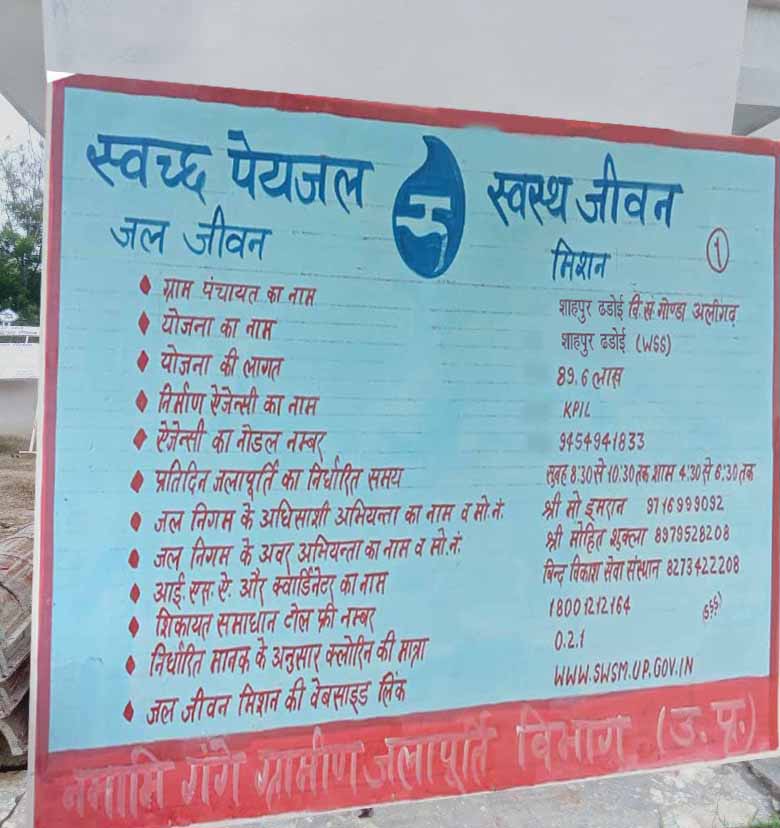 स्वच्छ पेयजल स्वस्थ जीवन
जल जीवन मिशन 1
ग्राम पंचायत का नाम शाहपुर ढडोई वि.सं. गोण्डा अलीगढ़
योजना का नाम शाहपुर ढडोई (WSS)
योजना की लागत 89.6 लाख
निर्माण ऐजेन्सी का नाम KPIL
ऐजेन्सी का नोडल नम्बर 9454941833
प्रतिदिन जलापूर्ति का निर्धारित समय सुबह 8:30 से 10:30 तक शाम 4:30 से 6:30 तक
जल निगम के अधिसाशी अभियन्ता का नाम व मो.नं. श्री मो इमरान 9716999092
जल निगम के अवर अभियन्ता का नाम व मो.नं. श्री मोहित शुक्ला 8979528208
आई.एस.ऐ. और क्वार्डिनेटर का नाम बिन्द विकाश सेवा संस्थान 8273422208
शिकायत समाधान टोल फ्री नम्बर 18001212164
निर्धारित मानक के अनुसार क्लोरिन की मात्रा 0.2.1
जल जीवन मिशन की वेबसाइड लिंक WWW.SWSM.UP.GOV.IN
नमामि गंगे ग्रामीण जलापूर्ति विभाग (उ.प्र.)